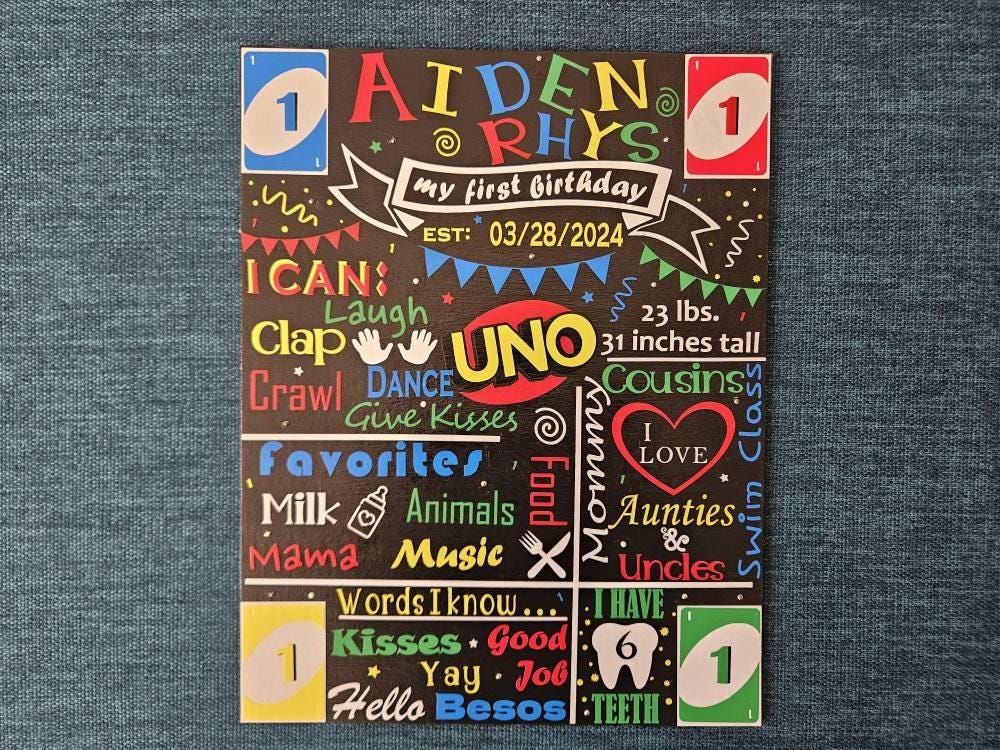 1
1
1
AIDEN
RHYS
1
1
1
my first birthday
EST: 03/28/2024
I CAN:
Laugh
Clap
Crawl
DANCE
Give Kisses
UNO
23 lbs.
31 inches tall
Favorites
Milk
Animals
Mama
Music
Food
Mommy
Cousins
I
LOVE
Aunties
&
Uncles
Swim Class
Words I know...
Kisses
Good
Job
Yay
Hello
Besos
I HAVE
6
TEETH
1
1
1
1
1